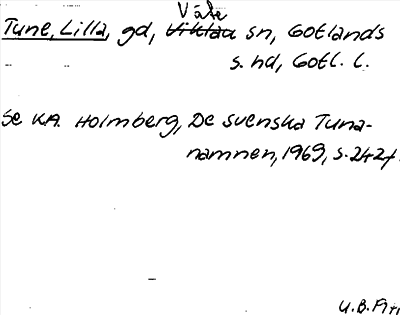 Väte
Tune, Lilla, gd, Viklau sn, Gotlands
s. hd, Gotl. l.
Se K.A. Holmberg, De svenska Tuna-
namnen, 1969, s. 242f.
U.B.